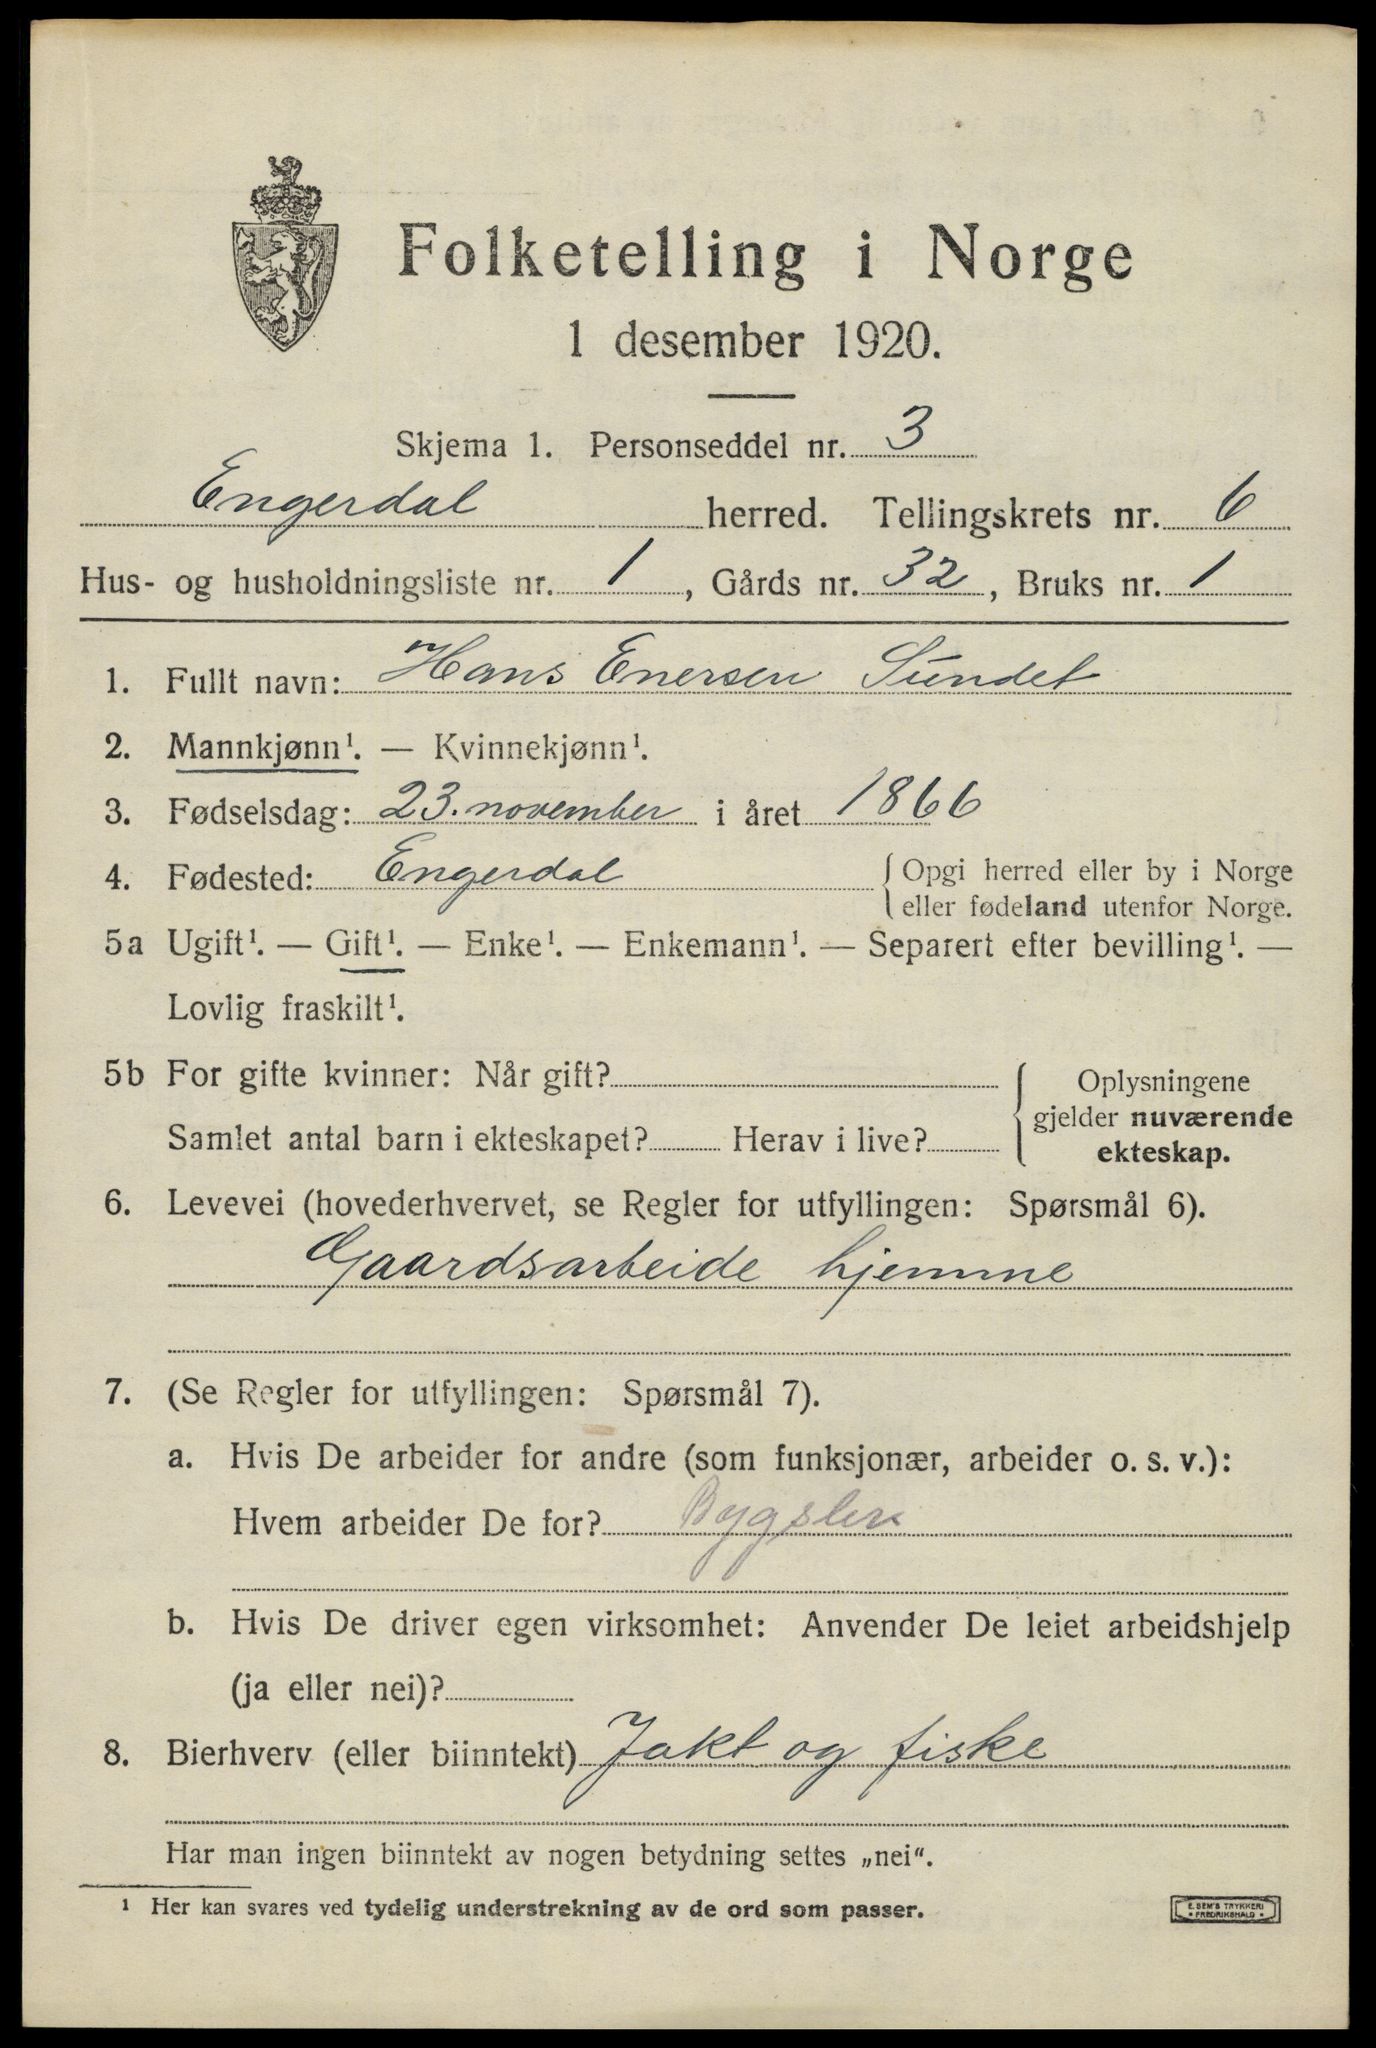 Folketelling i Norge
1 desember 1920.
Skjema 1. Personseddel nr. 3
Engerdal herred. Tellingskrets nr. 6
Hus- og husholdningsliste nr. 1, Gårds nr. 32, Bruks nr. 1
1. Fullt navn: Hans Enersen Sundet
2. Mannkjønn¹. — Kvinnekjønn¹.
3. Fødselsdag: 23. november i året 1866
4. Fødested: Engerdal {Opgi herred eller by i Norge
eller fødeland utenfor Norge.
5a Ugift¹. — Gift¹. — Enke¹. — Enkemann¹. — Separert efter bevilling¹. —
Lovlig fraskilt¹.
5b For gifte kvinner: Når gift?
Samlet antal barn i ekteskapet? Herav i live?
{Oplysningene
gjelder nuværende
ekteskap.
6. Levevei (hovederhvervet, se Regler for utfyllingen: Spørsmål 6).
Gaardsarbeide hjemme
7. (Se Regler for utfyllingen: Spørsmål 7).
a. Hvis De arbeider for andre (som funksjonær, arbeider o. s. v.):
Hvem arbeider De for? Bygsler
b. Hvis De driver egen virksomhet: Anvender De leiet arbeidshjelp
(ja eller nei)?
8. Bierhverv (eller biinntekt) Jakt og fiske
Har man ingen biinntekt av nogen betydning settes „nei“.
¹ Her kan svares ved tydelig understrekning av de ord som passer.
E. SEM'S TRYKKERI
• FREDRIKSHALD •